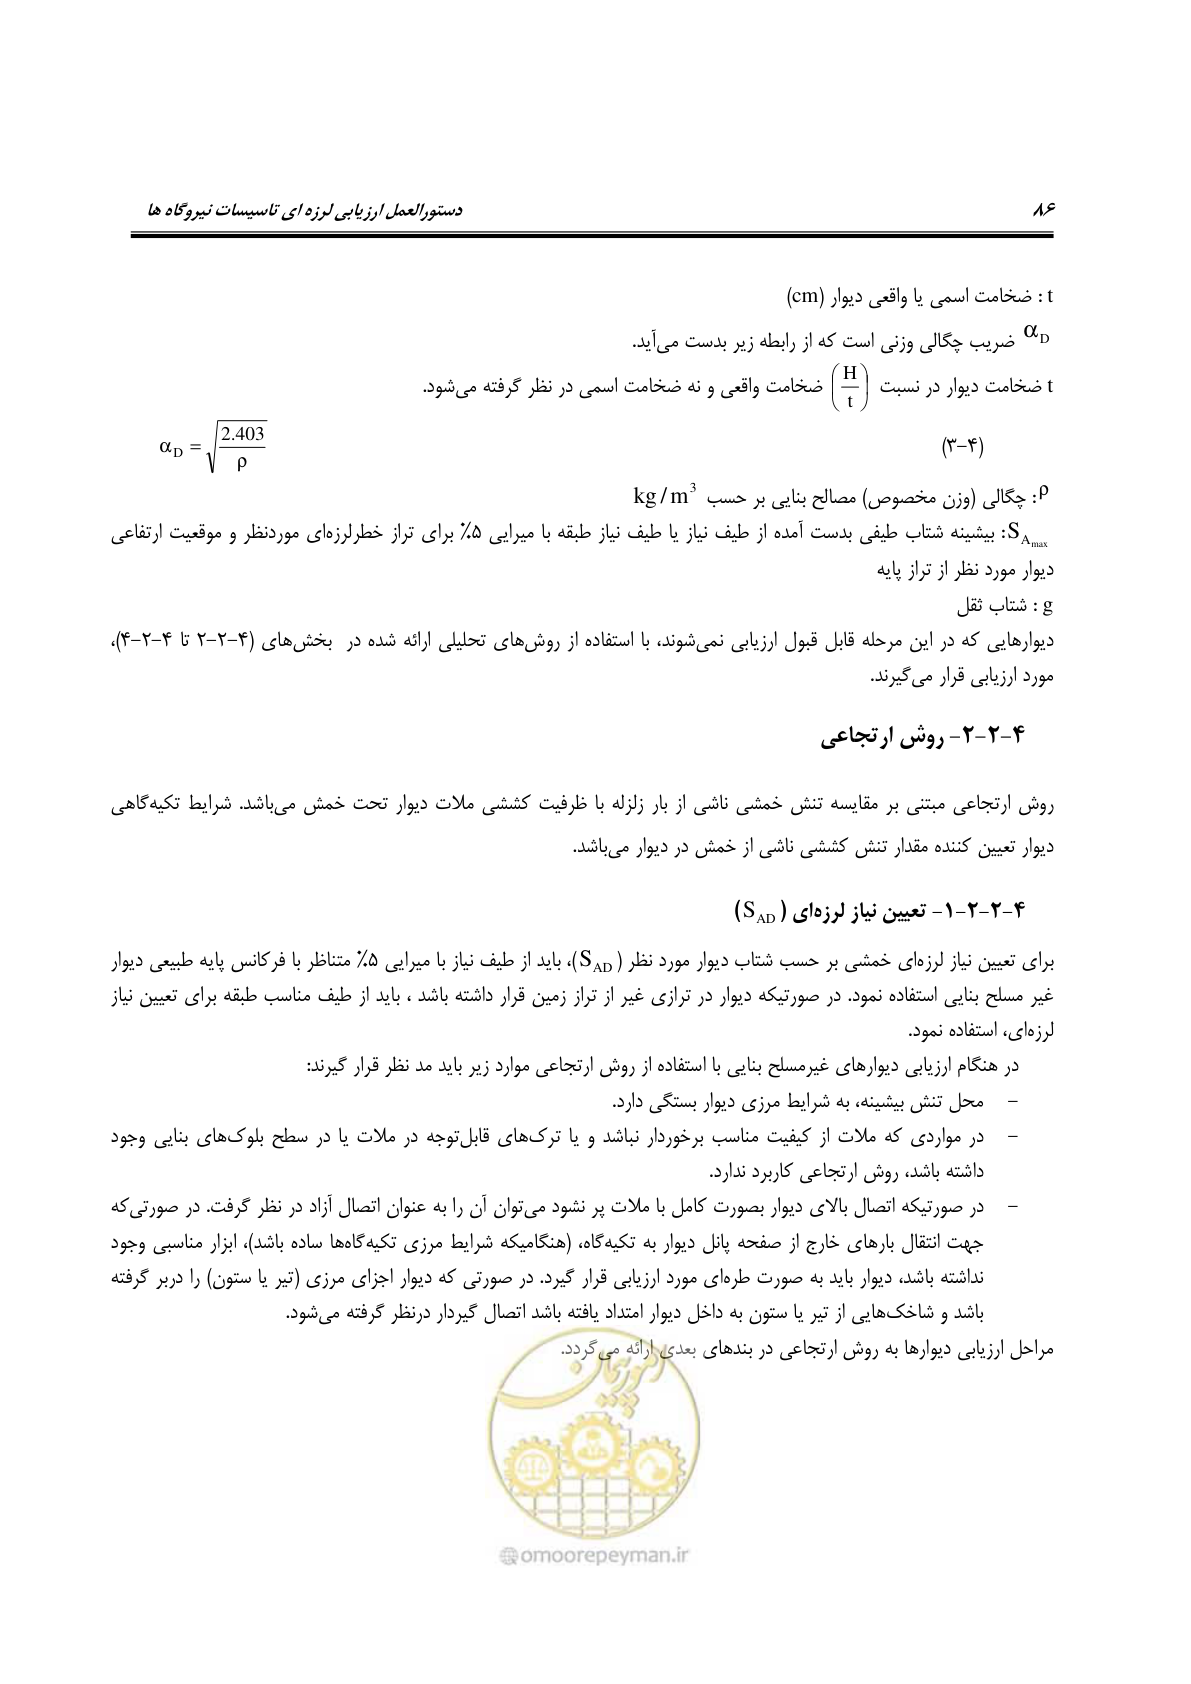 ۸۶ دستورالعمل ارزیابی لرزه ای تاسیسات نیروگاه ها
t : ضخامت اسمی یا واقعی دیوار (cm)
α_D ضریب چگالی وزنی است که از رابطه زیر بدست می‌آید.
t ضخامت دیوار در نسبت (H/t) ضخامت واقعی و نه ضخامت اسمی در نظر گرفته می‌شود.
(۳-۴) α_D = √(2.403/ρ)
ρ: چگالی (وزن مخصوص) مصالح بنایی بر حسب kg/m³
S_Amax: بیشینه شتاب طیفی بدست آمده از طیف نیاز یا طیف نیاز طبقه با میرایی ۵٪ برای تراز خطرلرزه‌ای موردنظر و موقعیت ارتفاعی
دیوار مورد نظر از تراز پایه
g : شتاب ثقل
دیوارهایی که در این مرحله قابل قبول ارزیابی نمی‌شوند، با استفاده از روش‌های تحلیلی ارائه شده در بخش‌های (۴-۲-۲ تا ۴-۲-۴)،
مورد ارزیابی قرار می‌گیرند.
۴-۲-۲- روش ارتجاعی
روش ارتجاعی مبتنی بر مقایسه تنش خمشی ناشی از بار زلزله با ظرفیت کششی ملات دیوار تحت خمش می‌باشد. شرایط تکیه‌گاهی
دیوار تعیین کننده مقدار تنش کششی ناشی از خمش در دیوار می‌باشد.
۴-۲-۲-۱- تعیین نیاز لرزه‌ای (S_AD)
برای تعیین نیاز لرزه‌ای خمشی بر حسب شتاب دیوار مورد نظر (S_AD)، باید از طیف نیاز با میرایی ۵٪ متناظر با فرکانس پایه طبیعی دیوار
غیر مسلح بنایی استفاده نمود. در صورتیکه دیوار در ترازی غیر از تراز زمین قرار داشته باشد ، باید از طیف مناسب طبقه برای تعیین نیاز
لرزه‌ای، استفاده نمود.
در هنگام ارزیابی دیوارهای غیرمسلح بنایی با استفاده از روش ارتجاعی موارد زیر باید مد نظر قرار گیرند:
– محل تنش بیشینه، به شرایط مرزی دیوار بستگی دارد.
– در مواردی که ملات از کیفیت مناسب برخوردار نباشد و یا ترک‌های قابل‌توجه در ملات یا در سطح بلوک‌های بنایی وجود
داشته باشد، روش ارتجاعی کاربرد ندارد.
– در صورتیکه اتصال بالای دیوار بصورت کامل با ملات پر نشود می‌توان آن را به عنوان اتصال آزاد در نظر گرفت. در صورتی‌که
جهت انتقال بارهای خارج از صفحه پانل دیوار به تکیه‌گاه، (هنگامیکه شرایط مرزی تکیه‌گاه‌ها ساده باشد)، ابزار مناسبی وجود
نداشته باشد، دیوار باید به صورت طره‌ای مورد ارزیابی قرار گیرد. در صورتی که دیوار اجزای مرزی (تیر یا ستون) را دربر گرفته
باشد و شاخک‌هایی از تیر یا ستون به داخل دیوار امتداد یافته باشد اتصال گیردار درنظر گرفته می‌شود.
مراحل ارزیابی دیوارها به روش ارتجاعی در بندهای بعدی ارائه می‌گردد.
امور پیمان
@omoorepeyman.ir